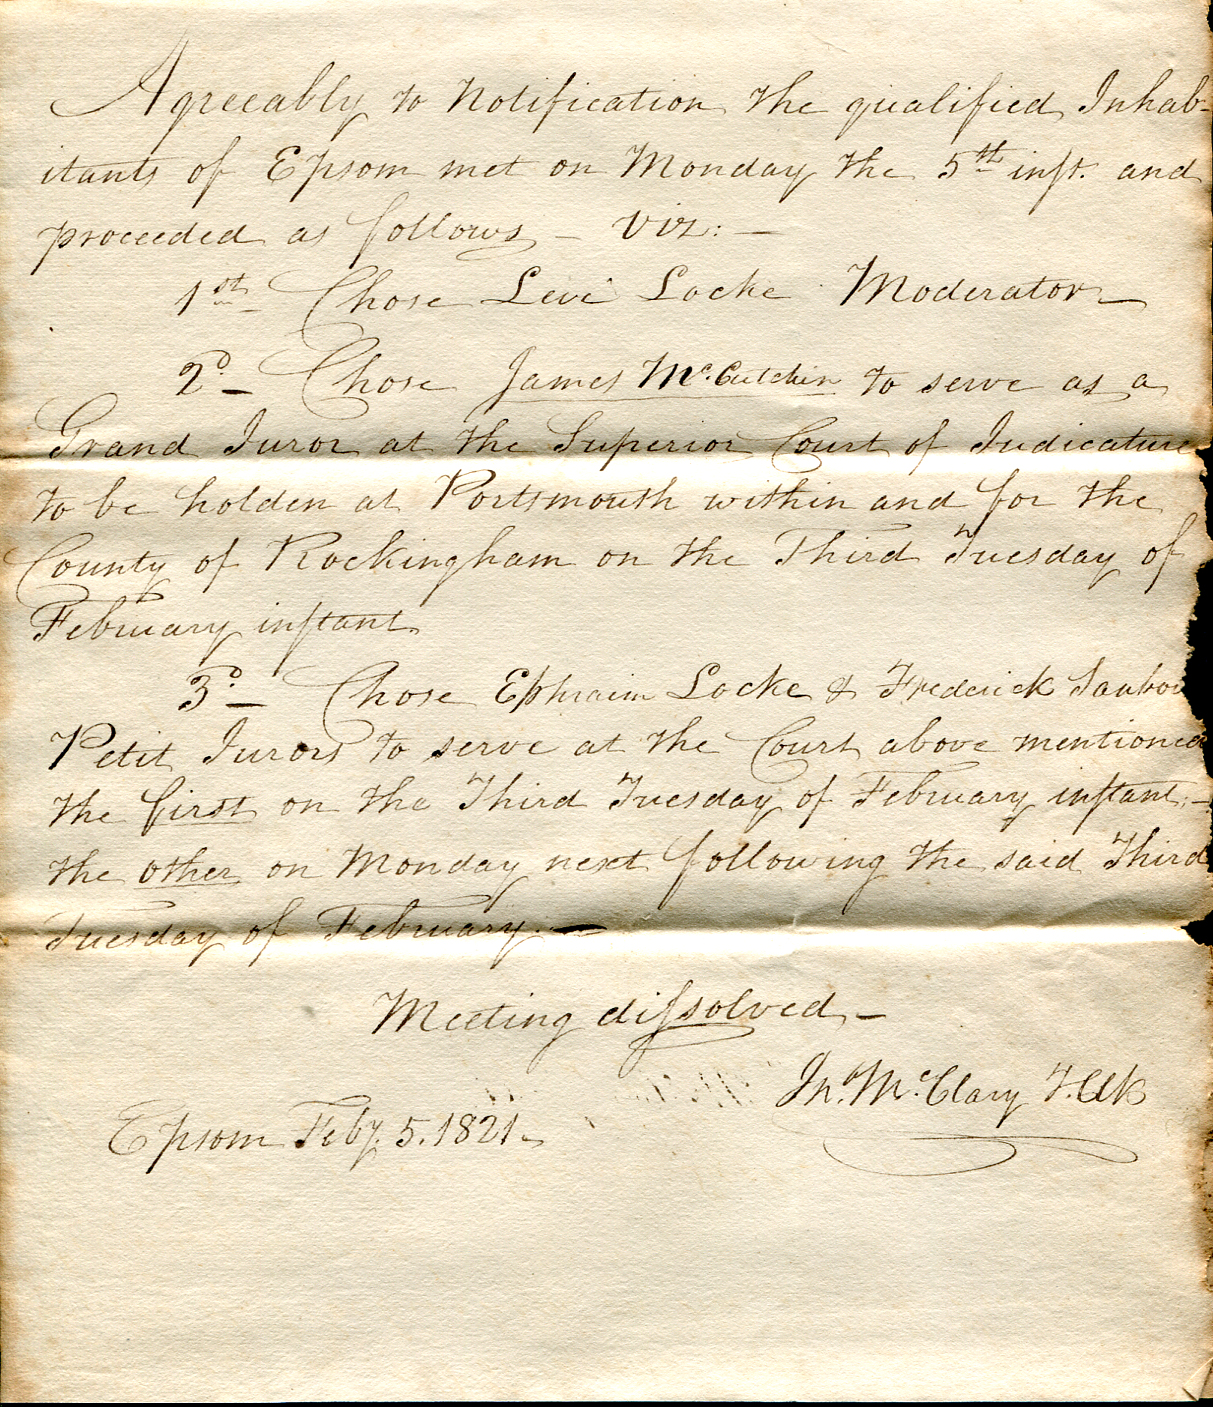 Agreeably to Notification the qualified Inhab-
itants of Epsom met on Monday the 5th inst. and
proceeded as follows – viz: –
1st Chose Levi Locke Moderator –
2d – Chose James Mc.Cutchin to serve as a
Grand Juror at the Superior Court of Judicature
to be holden at Portsmouth within and for the
County of Rockingham on the Third Tuesday of
February instant
3d – Chose Ephraim Locke & Frederick Sanbor
Petit Jurors to serve at the Court above mentioned
the first on the Third Tuesday of February instant: –
the other on Monday next following the said Third
Tuesday of February. –
Meeting dissolved –
Jno. Mc.Clary T. Clk
Epsom Feby. 5. 1821 –